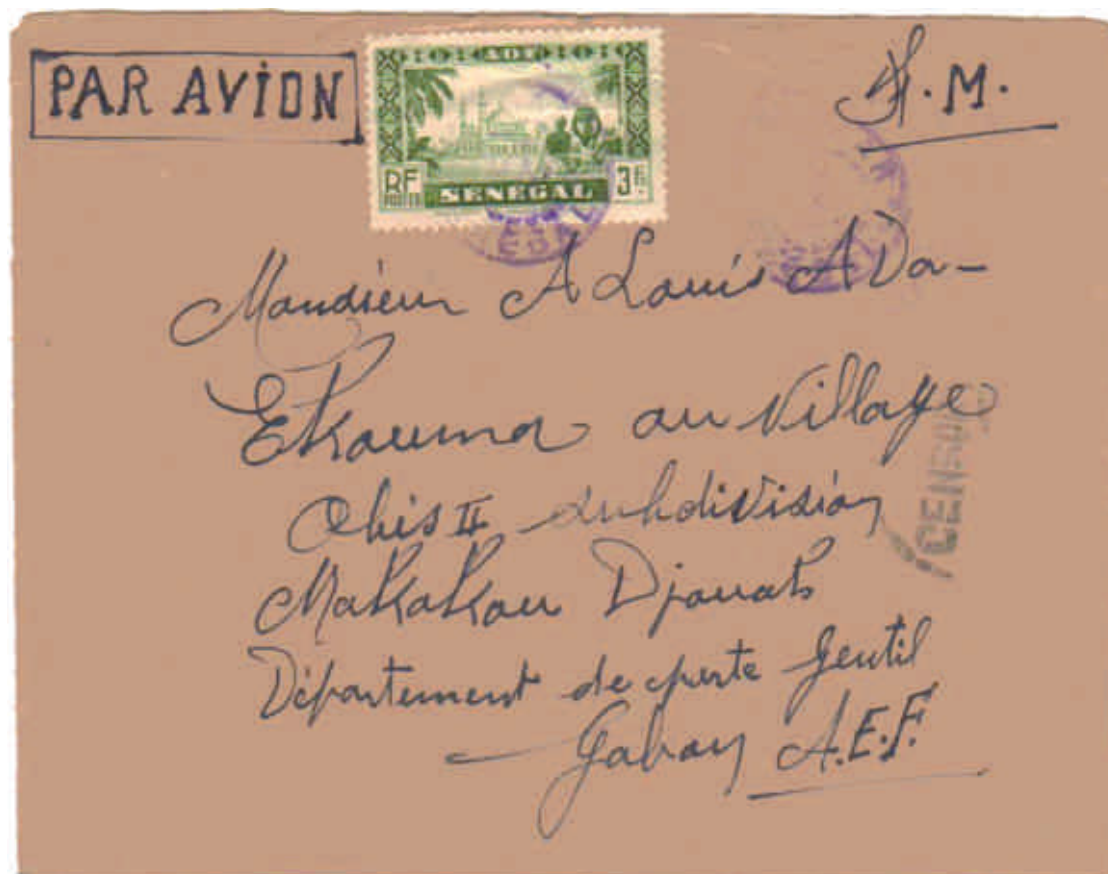 PAR AVION
F.M.
A.O.F
RF
POSTES
SENEGAL
3F
Mondieur A Louis ADa-
Ekouma au Village
Obis II subdivision
MaKoKou Djouah
Département de porte gentil
Gabon A.E.F.
CENSU